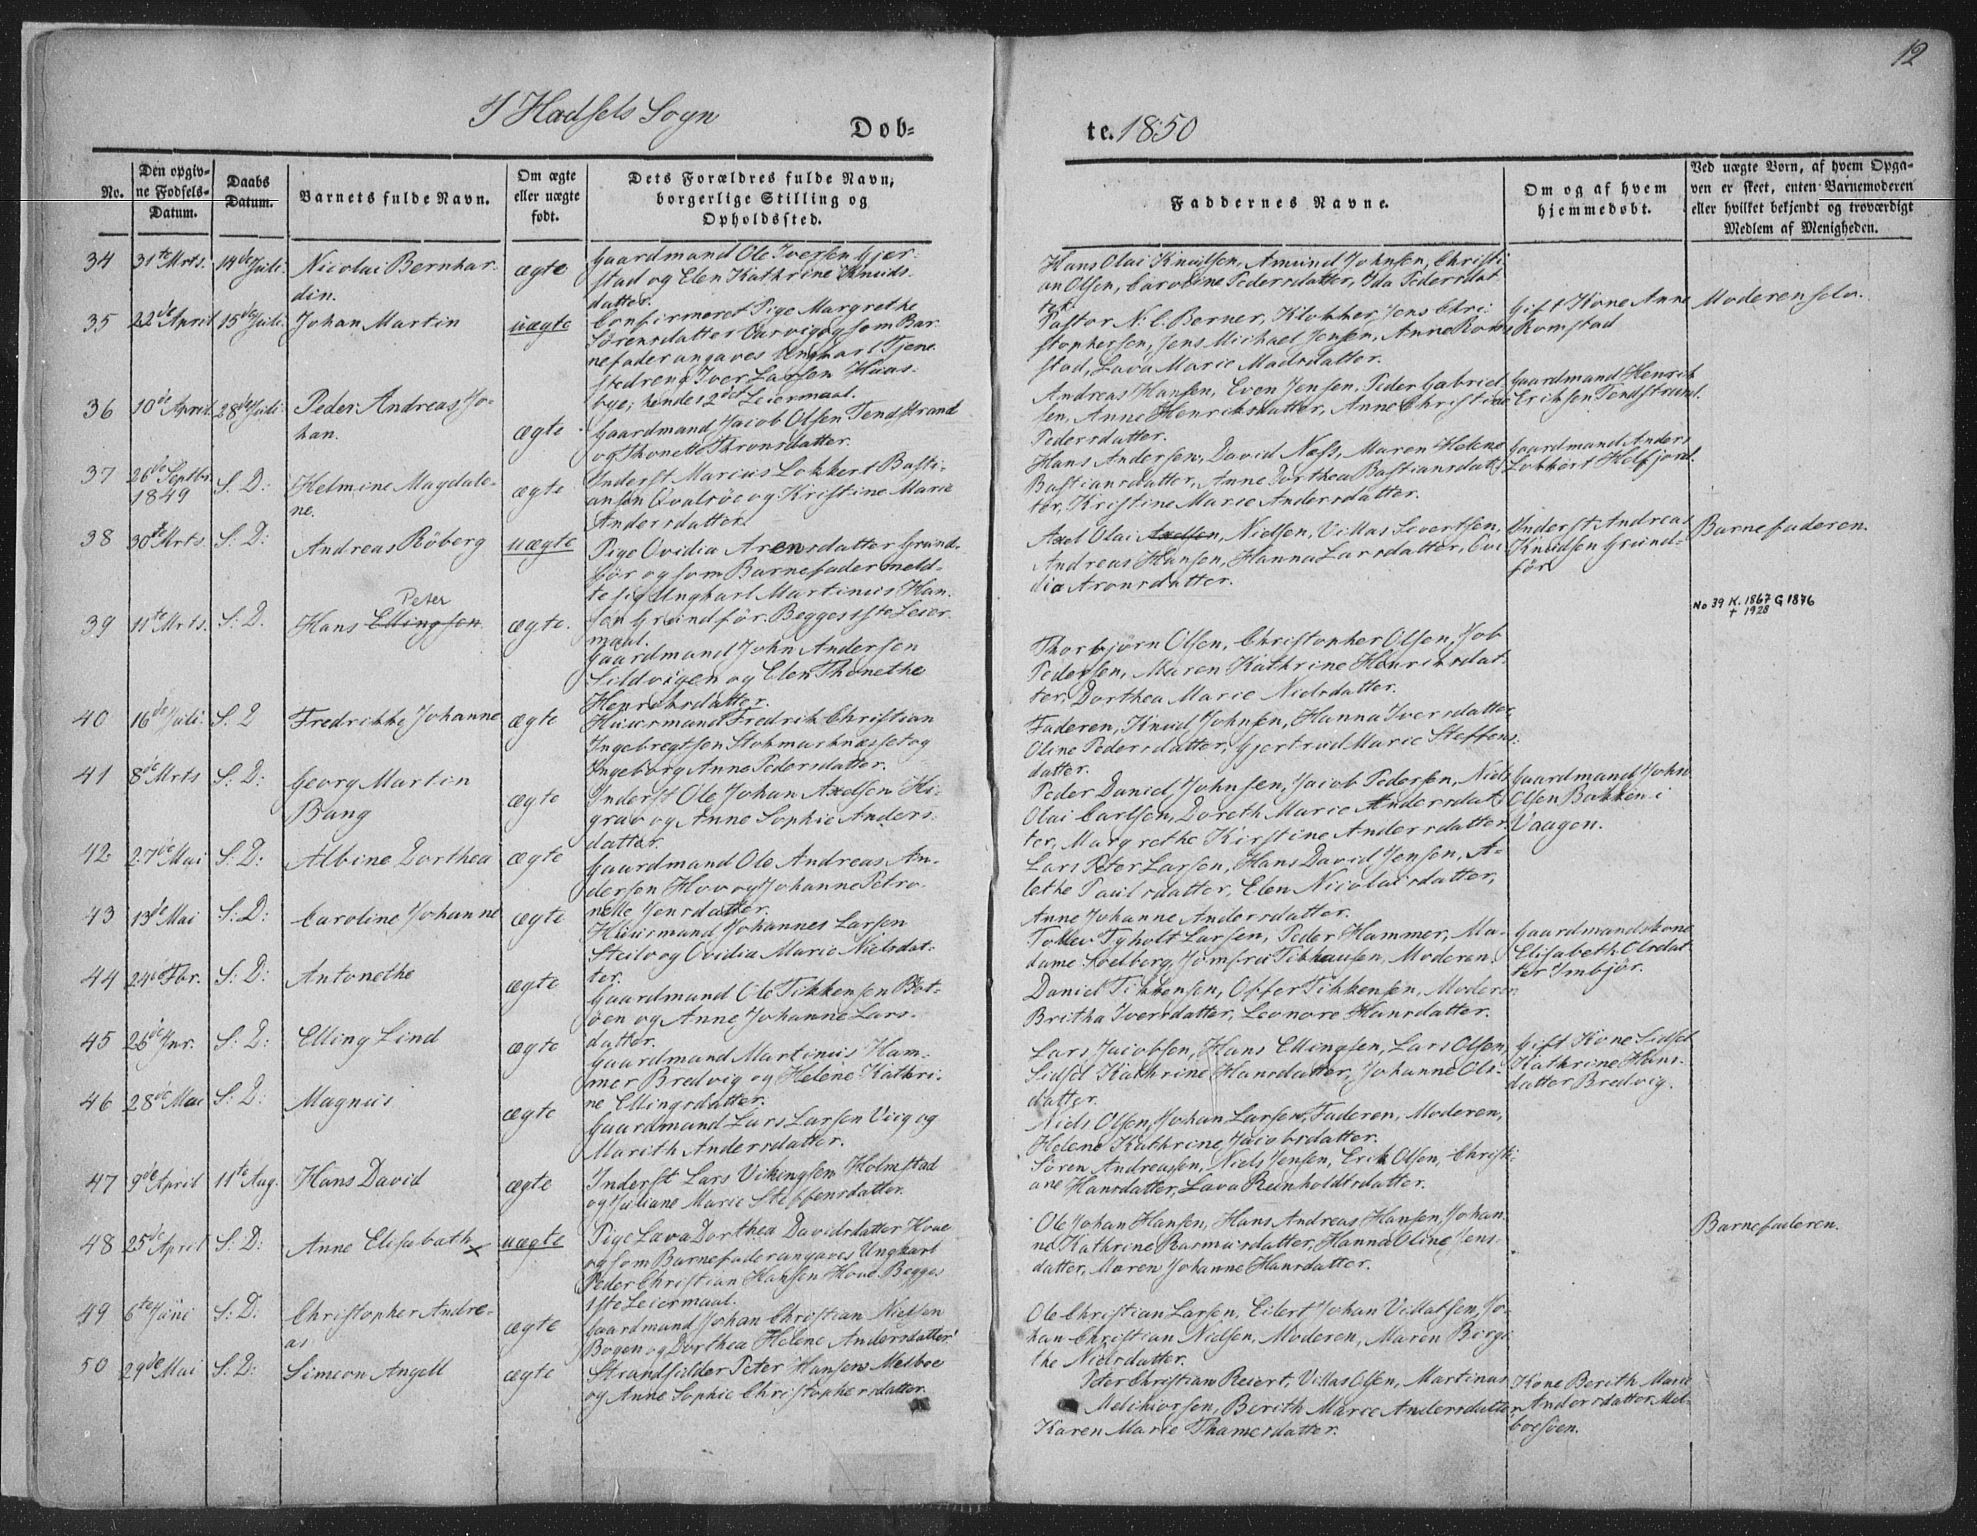 12
I Hadsels Sogn
Dob=
te. 1850
No.
Den opgiv-
ne Fodsels-
Datum.
Daabs
Datum.
Barnets fulde Navn.
Om ægte
eller uægte
født.
Dets Forældres fulde Navn,
borgerlige Stilling og
Opholdssted.
Faddernes Navne.
Om og af hvem
hjemmedobt.
Ved uægte Born, af hvem Opga-
ven er skeet, enten Barnemoderen
eller hvilket bekjendt og troværdigt
Medlem af Menigheden.
34 31te Mrts. 14de Juli. Nicolai Bernhar-
din.
ægte
Gaardmand Ole Iversen Gjer-
stad og Elen Kathrine Knuds-
datter.
Hans Olai Knudsen, Amund Johnsen, Christi-
an Olsen, Caroline Pedersdatter, Ida Pedersdat-
ter.
35 22de April 15de Juli. Johan Martin
uægte
Confirmeret Pige Margrethe
Sörensdatter og som Bar-
nefader angaves Ungkarl Tjene-
stedreng Iver Larsen Huus-
bye; hendes 2det Leiermaal.
Pastor N. C. Borner, Klokker Jens Chri-
stophersen, Jens Michael Jensen, Anne Rom-
stad, Lava Marie Madsdatter.
Gift Kone Anne
Romstad
Moderen selv.
36 10de April 28de Juli. Peder Andreas Jo-
han.
ægte
Gaardmand Jacob Olsen Tendstrand
og Thonette Thronsdatter.
Andreas Hansen, Even Jensen, Peder Gabriel-
sen, Anne Henriksdatter, Anne Christine
Pedersdatter.
Gaardmand Henrik
Eriksen Tendstrand.
37 26de Septbr.
1849
S. D: Helmine Magdale-
ne.
ægte
Inderst Marcus Lokkert Basti-
ansen Qvalsöe og Kristine Marie
Andersdatter.
Hans Andersen, David Næss, Maren Helene
Bastiansdatter, Anne Dorthea Bastiansdat-
ter, Kristine Marie Andersdatter.
Gaardmand Anders
Lokkert Helfjord.
38 30te Mrts. S. D: Andreas Röberg
uægte
Pige Ovidia Arensdatter Grund-
för og som Barnefader meld-
te sig Ungkarl Martinus Han-
sen Grundför. Begges 1ste Leier-
maal.
Axel Olai Axelsen, Nielsen, Villas Sivertsen,
Andreas Hansen, Hanna Larsdatter, Ovi-
dia Aronsdatter.
Inderst Andreas
Knudsen Grund-
för
Barnefaderen.
No 39 K. 1867 G 1876
† 1928
39 11te Mrts. S. D. Hans Ellingsen
Peter
ægte.
Gaardmand John Andersen
Sildvigen og Elen Thonethe
Henriksdatter.
Thorbjörn Olsen, Christopher Olsen, Job
Pedersen, Maren Kathrine Henriksdat-
ter, Dorthea Marie Nielsdatter.
40 16de Juli. S. D Fredrikke Johanne
ægte
Huusmand Fredrik Christian
Ingebregtsen Stokmarknæsset og
Ingeborg Anne Pedersdatter.
Faderen, Knud Johnsen, Hanna Iversdatter,
Oline Pedersdatter, Gjertrud Marie Steffens-
datter.
41 8de Mrts S. D: Georg Martin
Bang
ægte
Inderst Ole Johan Axelsen Hi-
grav og Anne Sophie Anders-
datter.
Peder Daniel Johnsen, Jacob Pedersen, Niels
Olai Carlsen, Doreth Marie Andersdat-
ter, Margrethe Kirstine Andersdatter.
Gaardmand John
Olsen Bakken i
Vaagen.
42 27de Mai S. D: Albine Dorthea
ægte
Gaardmand Ole Andreas An-
dersen Hov og Johanne Petro-
nelle Jensdatter.
Lars Peter Larsen, Hans David Jensen, A-
lethe Paulsdatter, Elen Nicolaisdatter,
Anne Johanne Andersdatter.
43 13de Mai S. D: Caroline Johanne
ægte
Huusmand Johannes Larsen
Steilo og Ovidia Marie Nielsdat-
ter.
Tollev Tyholt Larsen, Peder Hammer, Ma-
dame Soelberg, Jomfru Tikkausen, Moderen.
Gaardmandskone
Elisabeth Olsdat-
ter Imbjör.
44 24de Fbr. S. D: Antonethe
ægte
Gaardmand Ole Tikkensen Böt-
öen og Anne Johanne Lars-
datter.
Daniel Tikkensen, Offer Tikkensen, Moderen
Britha Iversdatter, Leonore Hansdatter.
45 26de Jnr. S. D: Elling Lind
ægte
Gaardmand Martinus Ham-
mer Bredvig og Helene Kathri-
ne Ellingsdatter.
Lars Jacobsen, Hans Ellingsen, Lars Olsen,
Sidsel Kathrine Hansdatter, Johanne Ols-
datter.
Gift Kone Sidsel
Kathrine Hans-
datter Bredvig.
46 28de Mai S. D: Magnus
ægte
Gaardmand Lars Larsen Viig og
Marith Andersdatter.
Niels Olsen, Johan Larsen, Faderen, Moderen,
Helene Kathrine Jacobsdatter.
47 9de April 11te Aug. Hans David
ægte
Inderst Lars Vikingsen Holmstad
og Juliane Marie Steffensdatter.
Sören Andreassen, Niels Jensen, Erik Olsen, Christi-
ane Hansdatter, Lava Reinholdtsdatter.
48 25de April S. D: Anne Elisabath x
uægte
Pige Lava Dorthea Davidsdatter Hove
og som Barnefader angaves Ungkarl
Peder Christian Hansen Hove. Begges
1ste Leiermaal.
Ole Johan Hansen, Hans Andreas Hansen, Johan-
ne Kathrine Rasmusdatter, Hanna Oline Jens-
datter, Maren Johanne Hansdatter.
Barnefaderen.
49 6te Juni S. D: Christopher Andre-
as
ægte
Gaardmand Johan Christian Nielsen
Bogen og Dorthea Helene Andersdatter
Ole Christian Larsen, Eilert Johan Villatsen, Jo-
han Christian Nielsen, Moderen, Maren Berge-
the Nielsdatter.
50 29de Mai S. D: Simeon Angell
ægte
Strandsidder Peter Hansen Melboe
og Anne Sophie Christophersdatter.
Peter Christian Reiert, Villas Olsen, Martinus
Melchiorsen, Berith Marie Andersdatter
Karen Marie Thamesdatter.
Kone Berith Marie
Andersdatter Mel-
boesöen.